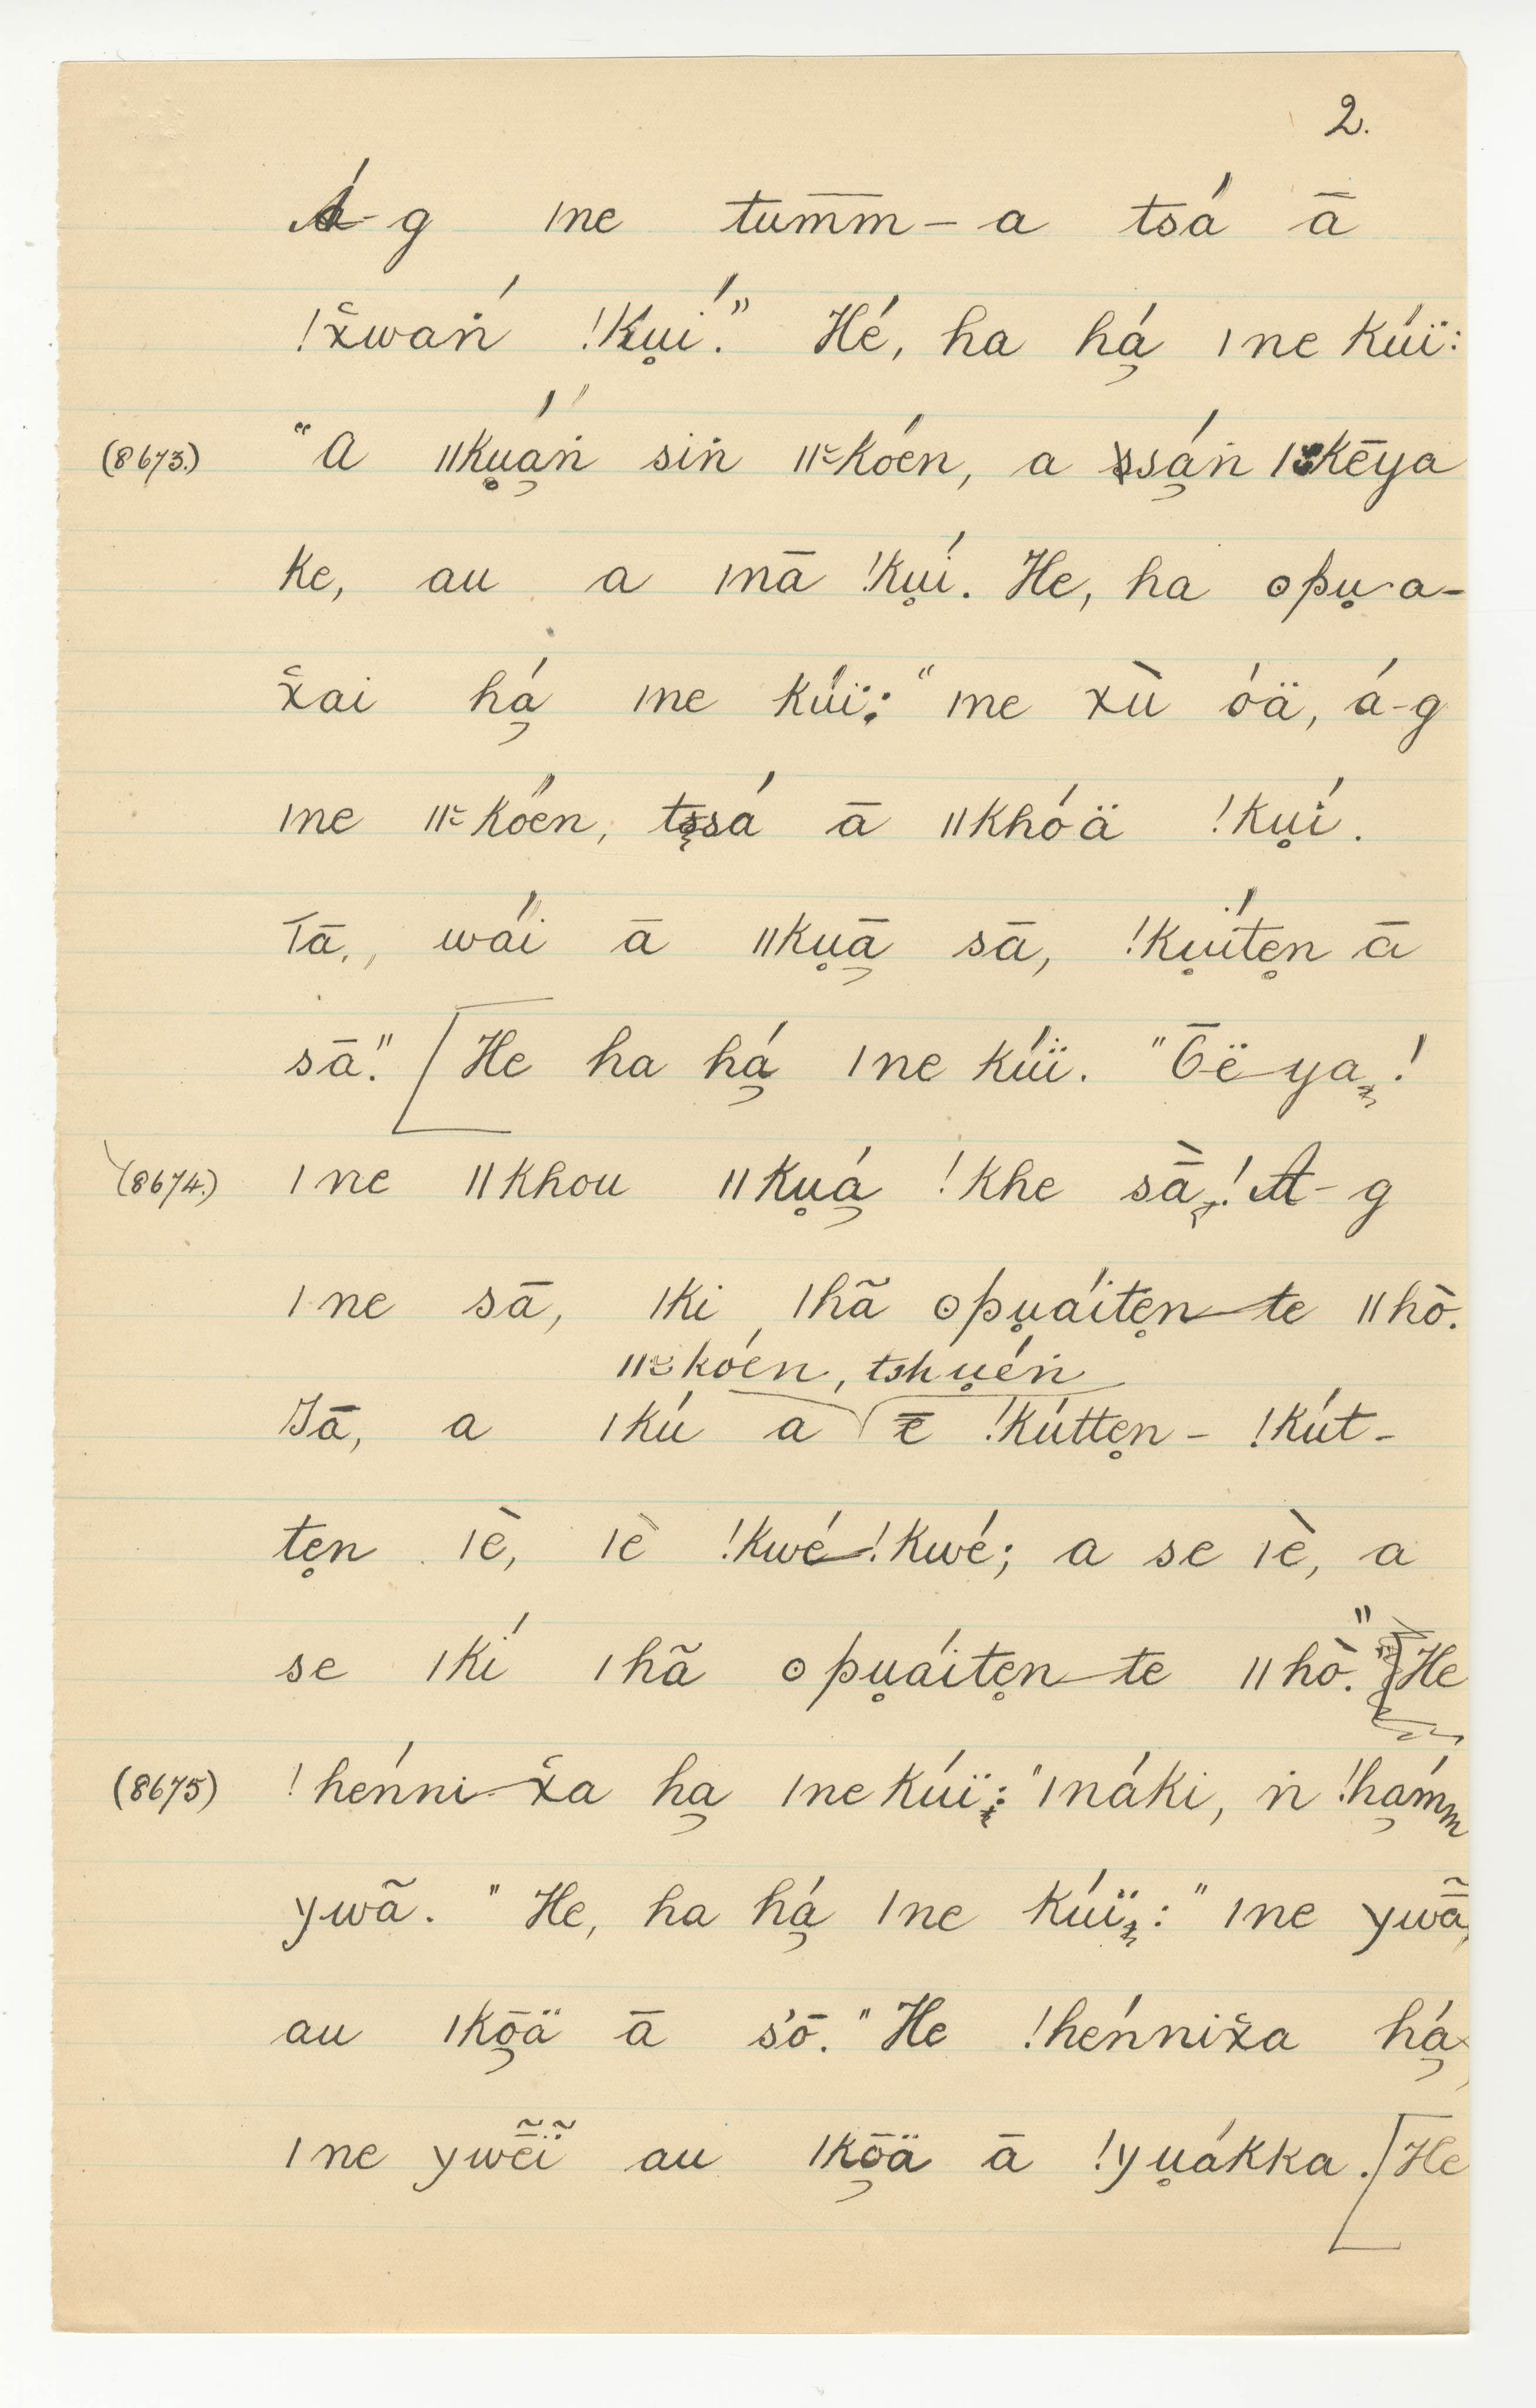 2.
Á-g ǀne tum̅m̅-a tsá ā
ǃx̌wań̇ ǃku̥í." Hé, ha há̢ ǀne kúï:
(8673.) "A ǁku̥á̢ṅ siṅ ǁ͏̆kóen, a ssá̢ṅ ǀkēya
ke, au a ǀnā ǃku̥í. He, ha ʘpu̥a-
x̌ai há̢ ǀne kúï: "ǀne xù óä, á-g
ǀne ǁ͏̆kóen, tssá ā ǁkhóä ǃku̥í.
Tā, wái ā ǁku̥ā̢ sā, ǃku̥íte̥n ā
sā." [He ha há̢ ǀne kúï. "Ōë ya!
(8674.) ǀne ǁkhou ǁku̥á̢ ǃkhe sā̀! A-g
ǀne sā, ǀki ǀhã ʘpu̥áite̥n-te ǁhò.
ǁ͏̆kóen, tshu̥éṅ
Tā, a ǀkú a ē ǃkútte̥n-ǃkút-
te̥n ǀè, ǀè ǃkwé-ǃkwé; a se ǀè, a
se ǀkí ǀhã ʘpu̥áite̥n-te ǁhò." [He
(8675) ǃhénni-x̌a ha̢ ǀne kúï: "ǀnáki, ṅ ǃhá̢mm
ywã. " He, ha há̢ ǀne kúï: "ǀne ywā̃,
au ǀkō̢ä ā s'ō." He ǃhénnix̌a há̢
ǀne ywē̃ï̃ au ǀkō̢ä ā ǃyu̥ákka. [He